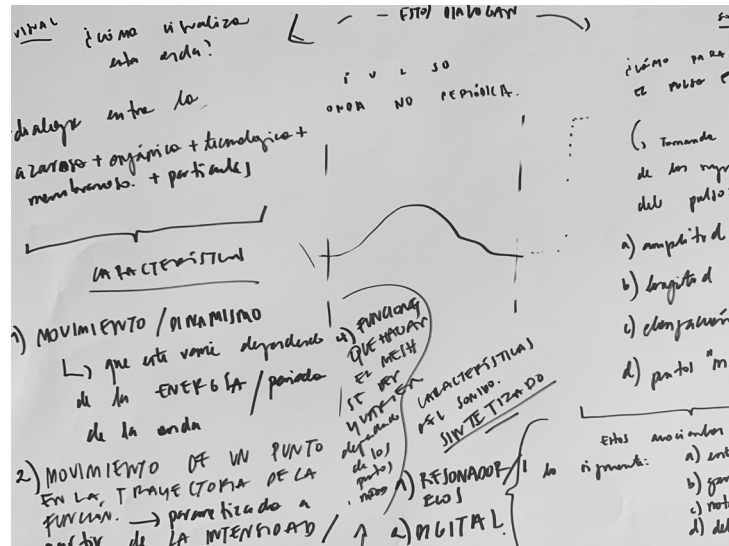 ¿Cómo visualizo
esta onda?
ESTOS DIALOGAN
ONDA NO PERIÓDICA.
dialogo entre lo
azaroso + orgánico + tecnológico +
membranoso. + particulas
CARACTERÍSTICAS
1) MOVIMIENTO / DINAMISMO
que este varie dependiendo
de la ENERGÍA / periodo
de la onda
2) MOVIMIENTO DE UN PUNTO
EN LA TRAYECTORIA DE LA
FUNCIÓN. → parametrizado a
partir de LA INTENSIDAD /
4) FUNCIONES
QUE HAGAN
EL MESH
SE DEN
dependiendo
de los
puntos
CARACTERÍSTICAS
DEL SONIDO.
SINTETIZADO
1) RESONADOR /
ECOS
2) DIGITAL.
¿CÓMO PARA
EL PULSO
Tomando
de los
del pulso
a) amplitud
b) longitud
c) elongación
d) puntos "m
Estos asociarlos
lo siguiente:
a)
b)
c)
d)